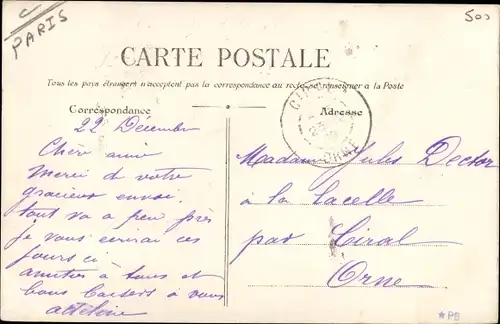 PARIS
500
CARTE POSTALE
Tous les pays étrangers n'acceptent pas la correspondance au recto, se renseigner a la Poste
Correspondance
Adresse
22 Décembre
Chère amie
Merci de votre
gracieux envoi.
tout va a peu près
Je vous ecrirai ces
jours ci
amitiés à tous et
bons baisers à vous
Madame Jules
à la Lacelle
par Ciral
Orne
ORNE
*PB